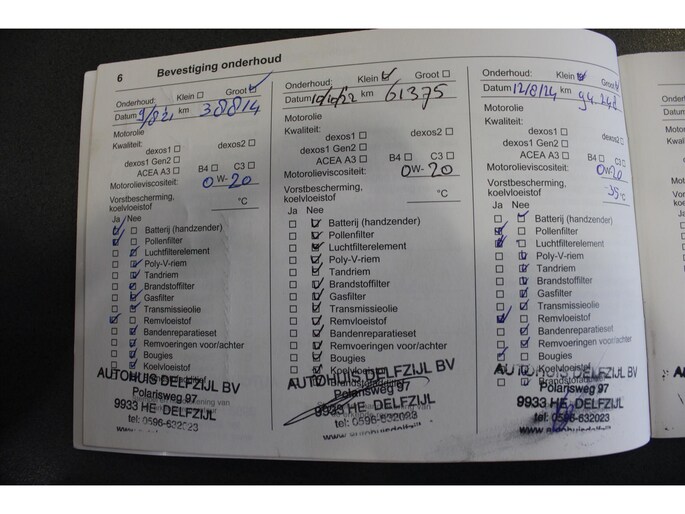 6 Bevestiging onderhoud
Onderhoud: Klein ☐ Groot ☑
Datum 9/8/21 km 38814
Motorolie
Kwaliteit:
dexos1 ☐ dexos2 ☐
dexos1 Gen2 ☐
ACEA A3 ☐ B4 ☐ C3 ☐
Motorolieviscositeit: 0W-20
Vorstbescherming,
koelvloeistof °C
Ja Nee
Batterij (handzender)
Pollenfilter
Luchtfilterelement
Poly-V-riem
Tandriem
Brandstoffilter
Gasfilter
Transmissieolie
Remvloeistof
Bandenreparatieset
Remvoeringen voor/achter
Bougies
Koelvloeistof
AUTOHUIS DELFZIJL BV
Polarisweg 97
9933 HE DELFZIJL
tel: 0596-632023
Onderhoud: Klein ☑ Groot ☐
Datum km 61375
Motorolie
Kwaliteit:
dexos1 ☐ dexos2 ☐
dexos1 Gen2 ☐
ACEA A3 ☐ B4 ☐ C3 ☐
Motorolieviscositeit: 0W-20
Vorstbescherming,
koelvloeistof °C
Ja Nee
Batterij (handzender)
Pollenfilter
Luchtfilterelement
Poly-V-riem
Tandriem
Brandstoffilter
Gasfilter
Transmissieolie
Remvloeistof
Bandenreparatieset
Remvoeringen voor/achter
Bougies
Koelvloeistof
AUTOHUIS DELFZIJL BV
Polarisweg 97
9933 HE DELFZIJL
tel: 0596-632023
Onderhoud: Klein Groot
Datum 12/8/24 km
Motorolie
Kwaliteit:
dexos1 ☐ dexos2 ☐
dexos1 Gen2 ☐
ACEA A3 ☐ B4 ☐ C3 ☐
Motorolieviscositeit: 0W20
Vorstbescherming,
koelvloeistof -35°C
Ja Nee
Batterij (handzender)
Pollenfilter
Luchtfilterelement
Poly-V-riem
Tandriem
Brandstoffilter
Gasfilter
Transmissieolie
Remvloeistof
Bandenreparatieset
Remvoeringen voor/achter
Bougies
Koelvloeistof
AUTOHUIS DELFZIJL BV
Polarisweg 97
9933 HE DELFZIJL
tel: 0596-632023